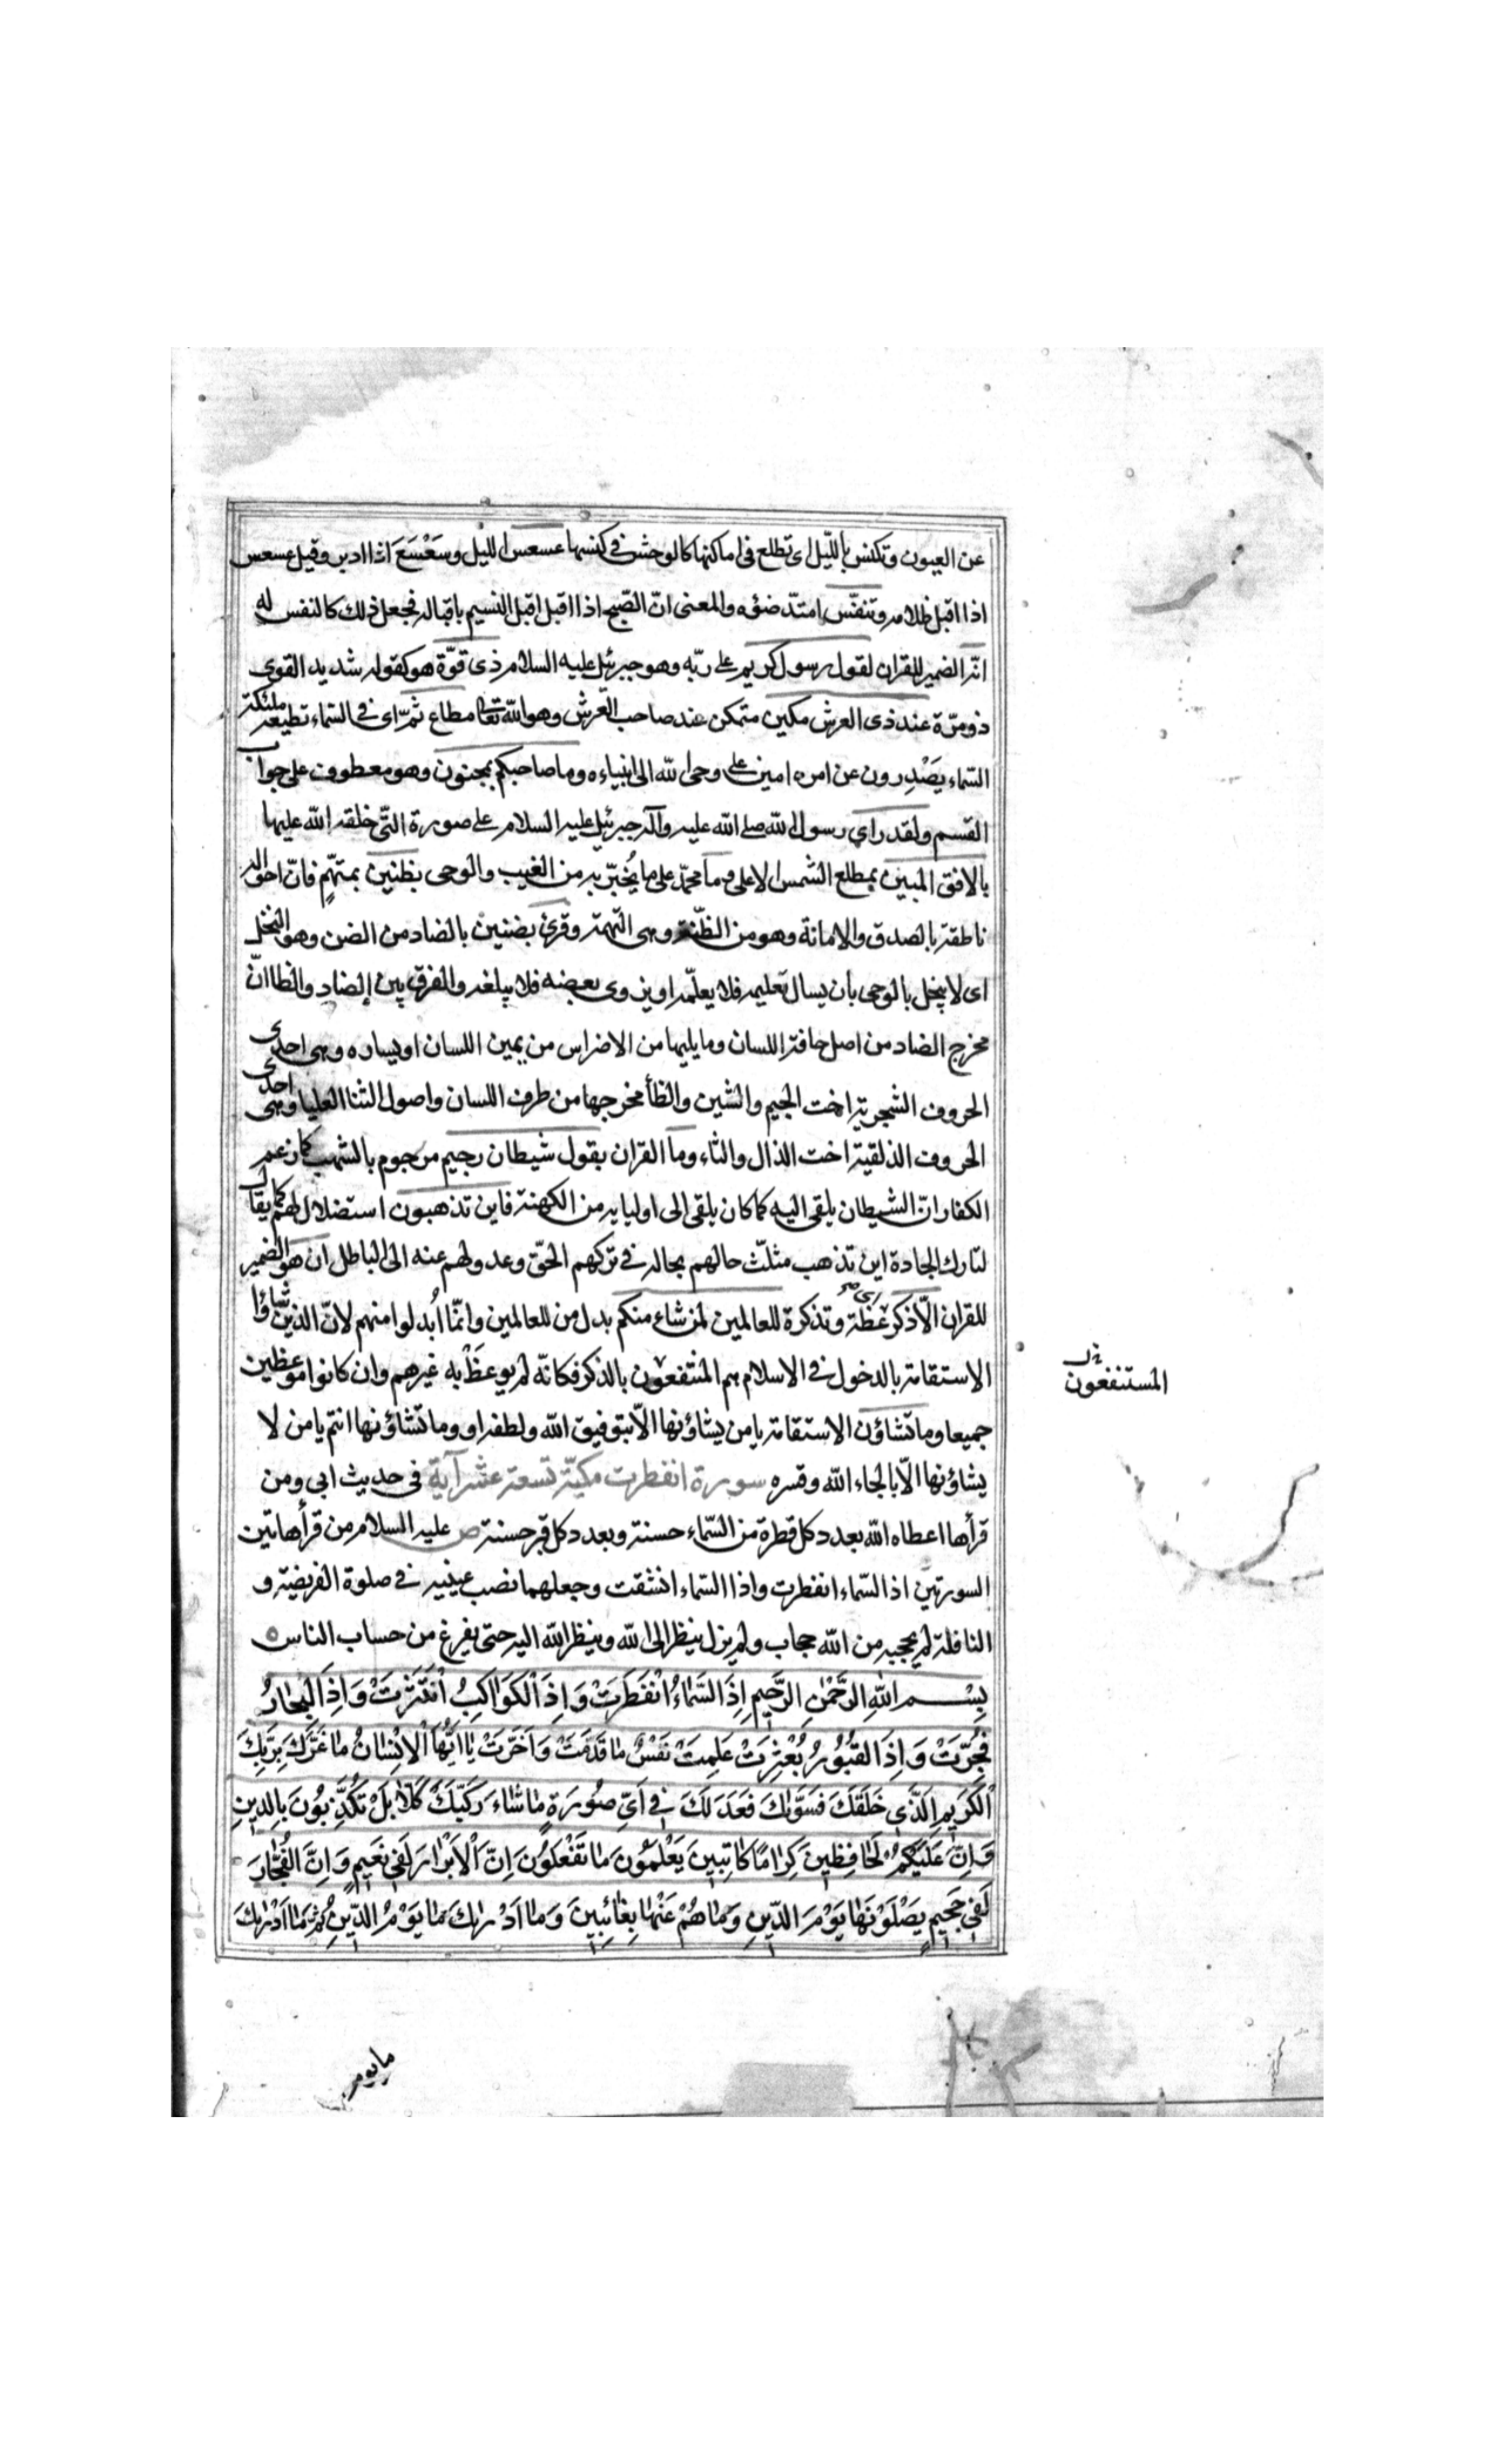 عن العيون وتكنس بالليل اى تطلع فى اماكنها كالوحش فى كنسها عسعس الليل وسَعْسَعَ اذا ادبر وقيل عسعس
اذا اقبل ظلامه وتنفّس امتدّ ضوؤه والمعنى انّ الصّبح اذا اقبل اقبل النسيم باقباله فجعل ذلك كالنفس له
انّه الضمير للقران لقول رسول كريم على ربّه وهو جبرئيل عليه السلام ذى قوّة هو كقوله شديد القوى
ذو مرّة عند ذى العرش مكين متمكن عند صاحب العرش وهو الله تعالى مطاع ثمّ اى فى السّماء تطيعه ملئكة
السّماء يَصْدِرون عن امره امين على وحى الله الى انبياءه وما صاحبكم بمجنون وهو معطوف على جواب
القسم ولقد راى رسول الله صلى الله عليه وآله جبرئيل عليه السلام على صورة التّى خلقه الله عليها
بالافق المبين بمطلع الشمس الاعلى وما محمّد على ما يُخبّر به من الغيب والوحى بظنين بمتهّم فانّ احواله
ناطقة بالصدق والامانة وهو من الظّنة وهى التّهمة وقرئ بضنين بالضاد من الضن وهو البخل
اى لا يبخل بالوحى بان يسال تعليمه فلا يعلّمه او يزوى بعضه فلا يبلغه والفرق بين الضاد والظا انّ
مخرج الضاد من اصل حافة اللسان وما يليها من الاضراس من يمين اللسان او يساره وهى احدى
الحروف الشجرية اخت الجيم والشين والظأ مخرجها من طرف اللسان واصول الثنا العليا وهى احدى
الحروف الذلقية اخت الذال والثاء وما القران بقول شيطان رجيم مرجوم بالشهب كما زعم
الكفار انّ الشيطان يلقى اليه كما كان يلقى الى اوليايه من الكهنة فاين تذهبون استضلال لهم كما يقال
لتارك الجادة اين تذهب مثلّت حالهم بحاله فى تركهم الحقّ وعدولهم عنه الى الباطل ان هو الضمير
للقران الّا ذكر عظة وتذكرة للعالمين لمن شاء منكم بدل من للعالمين وانّما اُبدلوا منهم لانّ الذين شاؤا
الاستقامة بالدخول فى الاسلام هم المنتفعون بالذكر فكانّه لم يوعظ به غيرهم وان كانوا موعظين
المستنفعون
جميعا وما تشاؤن الاستقامة يا من يشاؤنها الّا بتوفيق الله ولطفه او وما تشاؤنها انتم يا من لا
يشاؤنها الّا بالجاء الله وقسره سورة انفطرت مكيّة تسعة عشر آية فى حديث ابى ومن
قرأها اعطاه الله بعدد كل قطرة من السّماء حسنة وبعدد كل قبر حسنة ص عليه السلام من قرأ هاتين
السورتين اذا السّماء انفطرت واذا السّماء انشقت وجعلهما نصب عينيه فى صلوة الفريضة و
النافلة لم يحجبه من الله حجاب ولم يزل ينظر الى الله وينظر الله اليه حتى يفرغ من حساب الناس
بِسْمِ اللهِ الرَّحْمٰنِ الرَّحيمِ اِذَا السَّمٰاءُ انْفَطَرَتْ وَاِذَا الْكَوٰاكِبُ انْتَثَرَتْ وَاِذَا الْبِحٰارُ
فُجِّرَتْ وَاِذَا القُبُورُ بُعْثِرَتْ عَلِمَتْ نَفْسٌ مٰا قَدَّمَتْ وَاَخَّرَتْ يٰا اَيُّهَا الْاِنْسٰانُ مٰا غَرَّكَ بِرَبِّكَ
الْكَريمِ الَّذي خَلَقَكَ فَسَوّٰيكَ فَعَدَلَكَ في اَيِّ صُورَةٍ مٰا شٰاءَ رَكَّبَكَ كَلّٰا بَلْ تُكَذِّبُونَ بِالدينِ
وَاِنَّ عَلَيْكُمْ لَحٰافِظينَ كِرٰامًا كٰاتِبينَ يَعْلَمُونَ مٰا تَفْعَلُونَ اِنَّ الْاَبْرٰارَ لَفي نَعيمٍ وَاِنَّ الْفُجّٰارَ
لَفي جَحيمٍ يَصْلَوْنَهٰا يَوْمَ الدّينِ وَمٰا هُمْ عَنْهٰا بِغٰائِبينَ وَمٰا اَدْرٰيكَ مٰا يَوْمُ الدّينِ ثُمَّ مٰا اَدْرٰيكَ
ما يوم